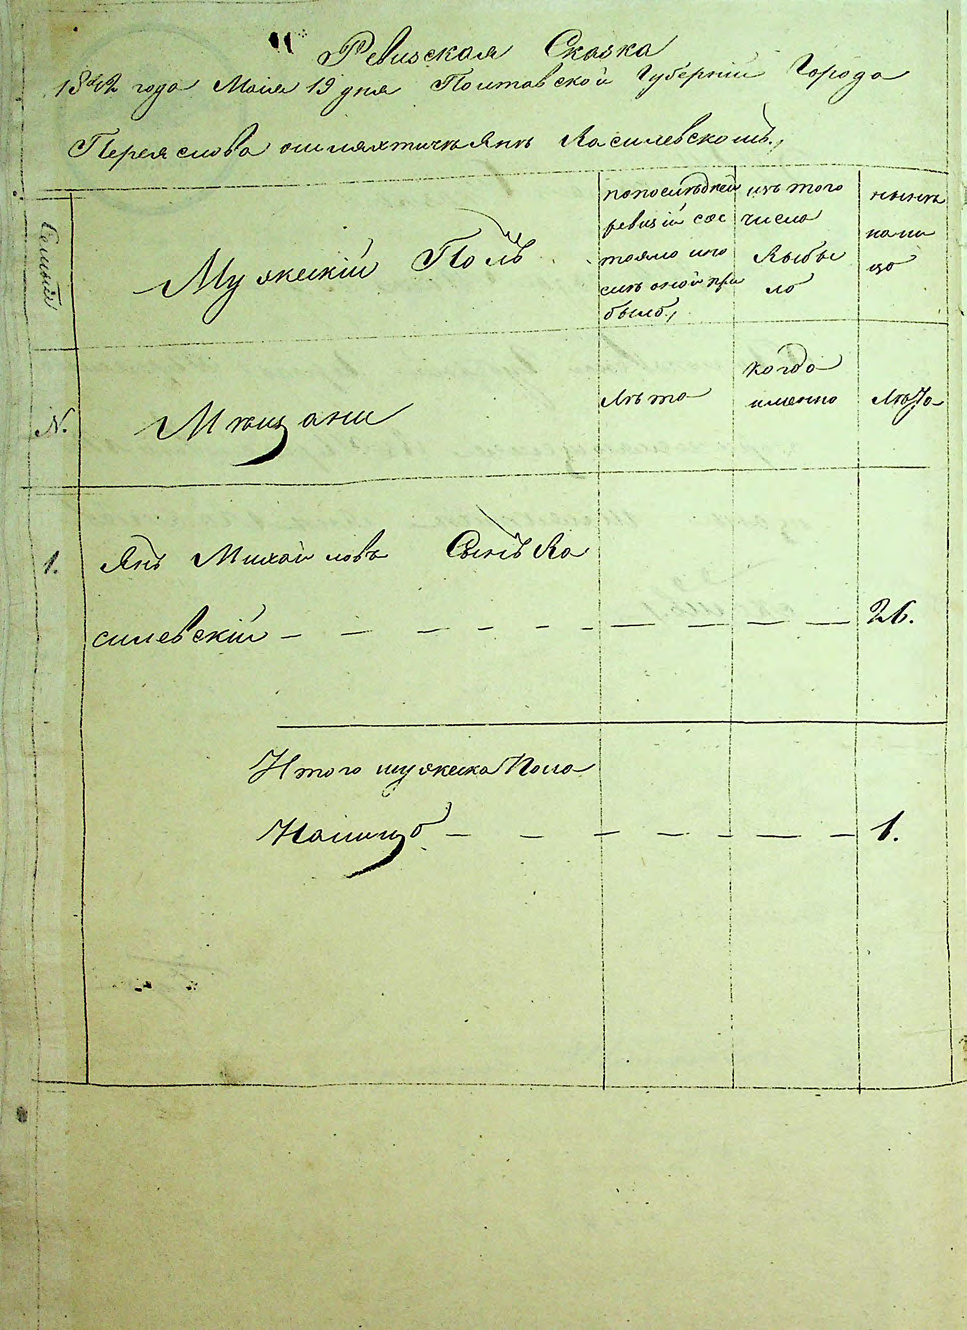 Ревизская Сказка
1842 года Маія 19 дня Полтавской Губерніи Города
Переяслова ошляхтичѣ Янѣ Василевскомъ,
Семьи
Мужескій Полъ
попослѣдней
ревизіи сос
тояло ипо
слѣ оной при
было,
изъ того
числа
выбы
ло
нынѣ
нали
цо
N.
Мѣщани
Лѣта
когда
именно
Лѣта
1.
Янъ Михайловъ Сынъ Ва
силевскій — — — — — — — — — — 26.
Итого мужеска Пола
Налицо — — — — — — — 1.